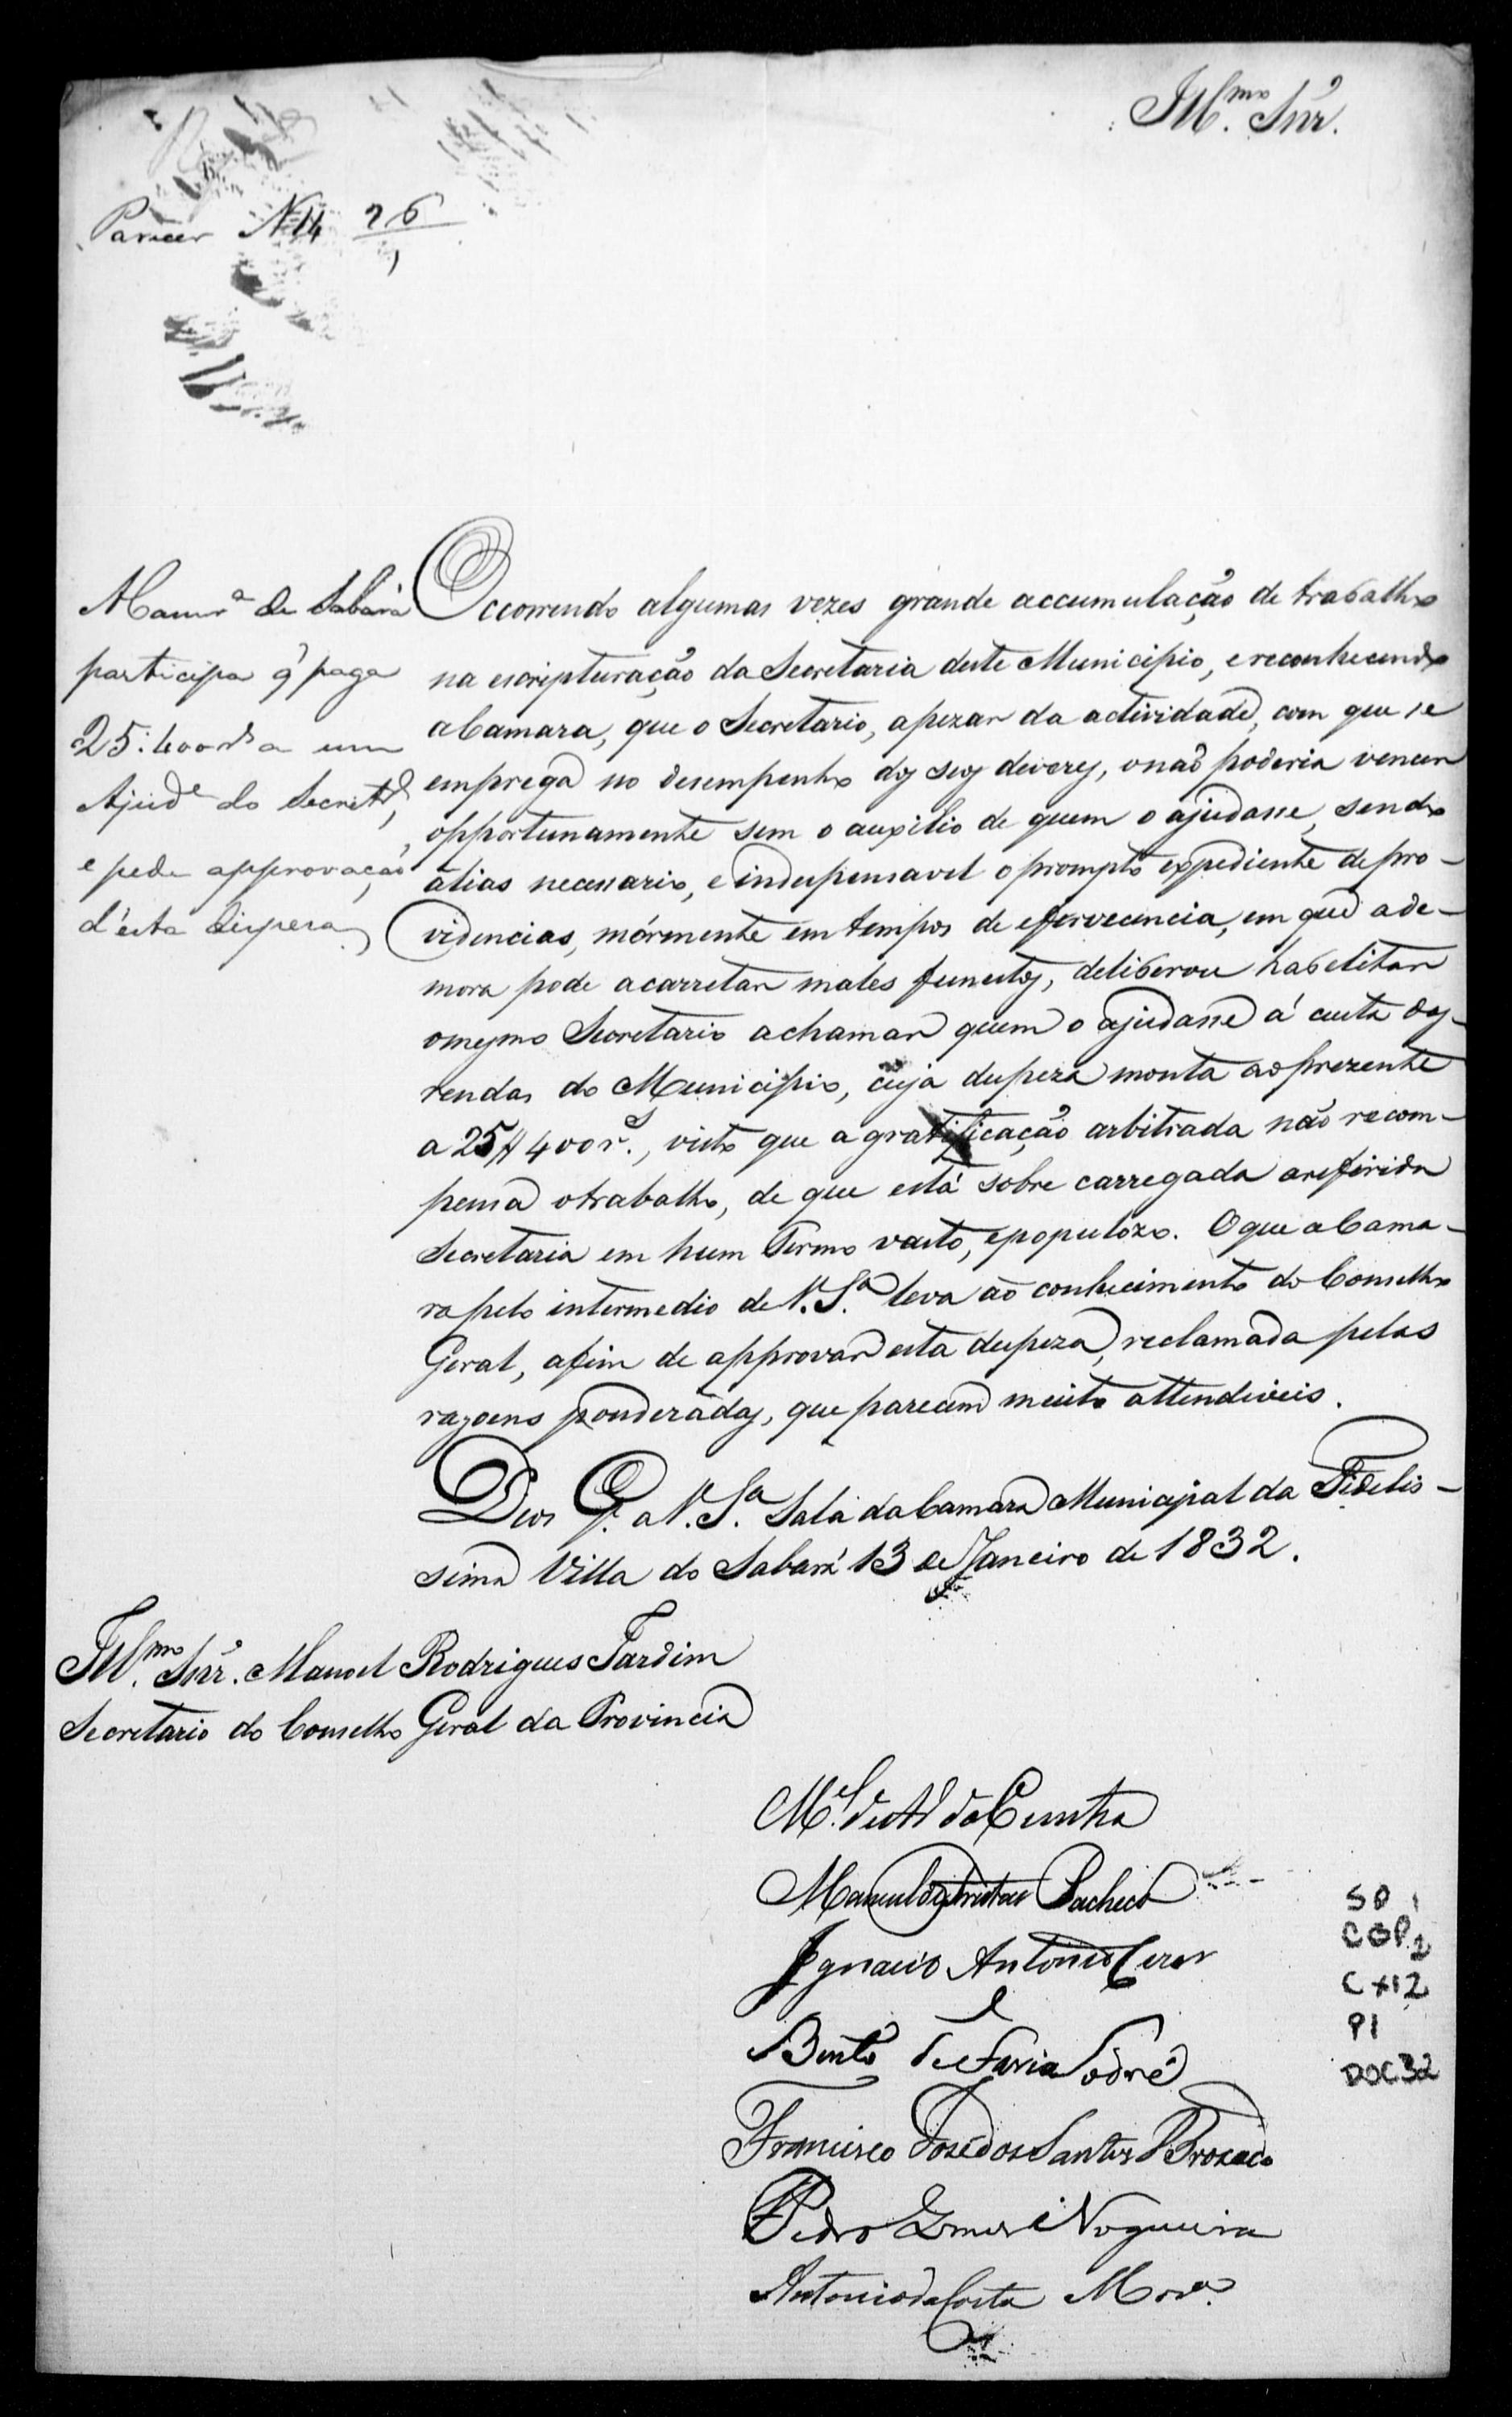 Ill.mo Snr.
Parecer N 14 26
1
A Camr.ª de Sabará
participa q' paga
25:400 rs a um
Ajud.e do Secret.º,
e pede approvação
d'esta dispesa
Occorrendo algumas vezes grande accumulação de trabalho
na escripturação da Secretaria deste Municipio, e reconhecendo
a Camara, que o Secretario, apezar da actividade, com que se
emprega no desempenho dos seus deveres, o não poderia vencer
opportunamente sem o auxilio de quem o ajudasse, sendo
alias necessario, e indispensavel o prompto expediente de pro-
videncias, mórmente em tempos de efervecencia, em que a de-
mora pode acarretar males funestos, deliberou habelitar
o mesmo Secretario a chamar quem o ajudasse á custa das
rendas do Municipio, cuja despeza monta ao prezente
a 25$400 rs., visto que a gratificação arbitrada não recom-
pensa o trabalho, de que está sobre carregada a referida
Secretaria em hum Termo vasto, e populozo. O que a Cama-
ra pelo intermedio de V. S.ª leva ao conhecimento do Conselho
Geral, afim de approvar esta despeza, reclamada pelas
razoens ponderadas, que parecem muito attendiveis.
Deos G. a V. S.ª Sala da Camara Municipal da Fidelis-
sima Villa do Sabará 13 de Janeiro de 1832.
Ill.mo Snr. Manoel Rodrigues Jardim
Secretario do Conselho Geral da Provincia
M.el de da Cunha
Manuel Pacheco
Ignacio Antonio Cezar
Bento de Faria Sodré
Francisco José dos Santos Brochado
Pedro Gomes Nogueira
Antonio da Costa Mor.ª
SP 1
CGP 2
CX12
P1
DOC32